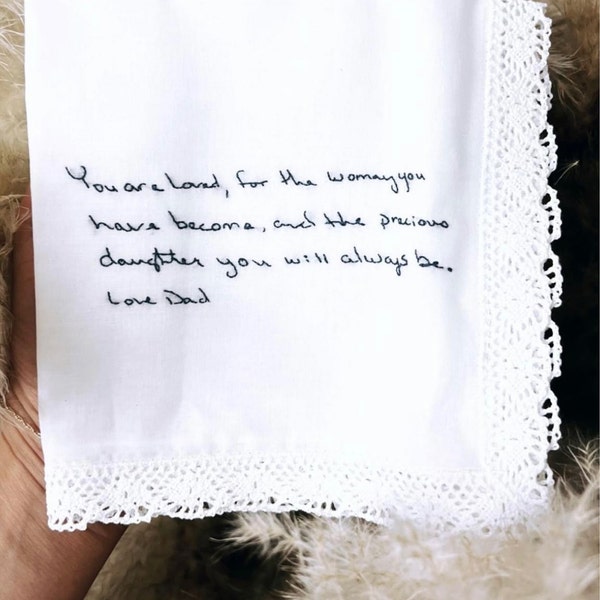 You are loved, for the woman you
have become, and the precious
daughter you will always be.
Love Dad